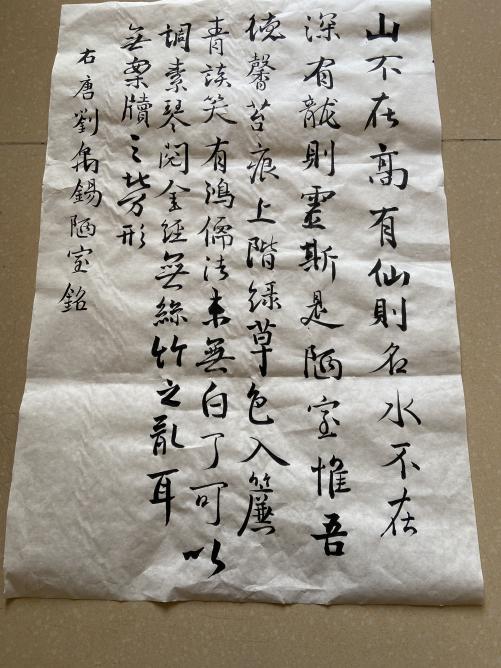 山不在高有仙則名水不在
深有龍則靈斯是陋室惟吾
德馨苔痕上階綠草色入簾
青談笑有鴻儒往来無白丁可以
調素琴閱金經無絲竹之亂耳
無案牘之勞形
右唐劉禹錫陋室銘